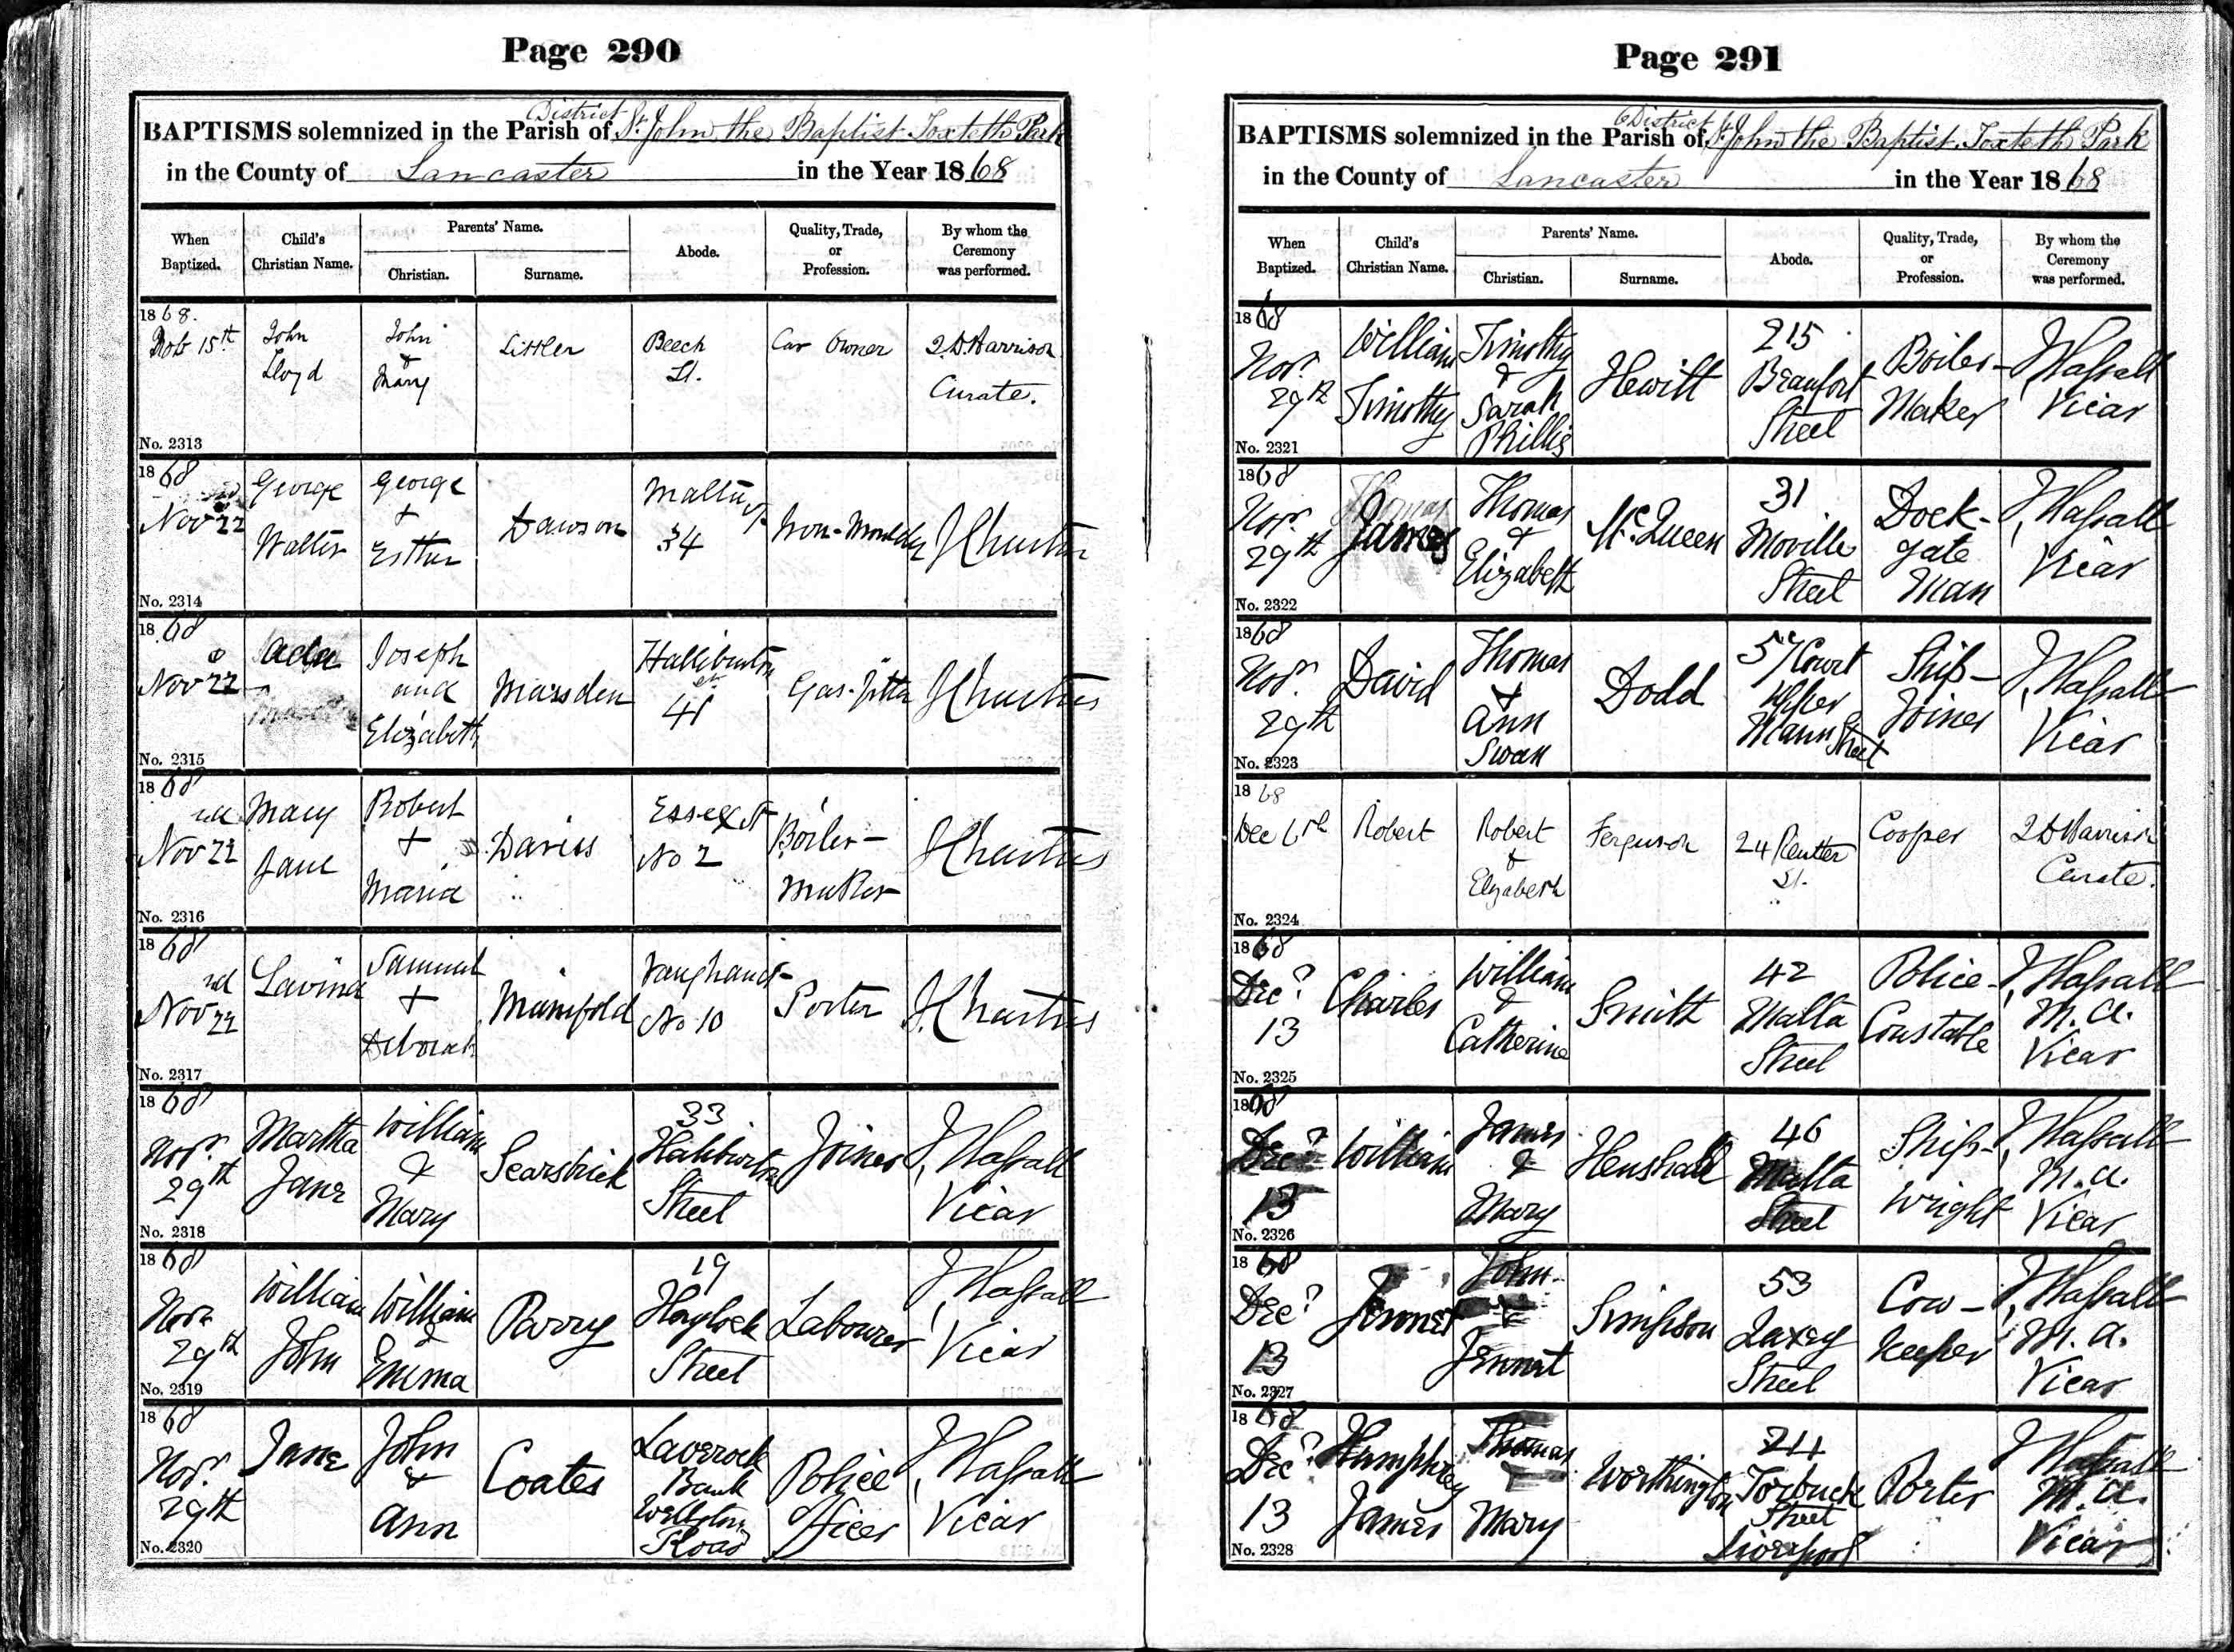 Page 290
BAPTISMS solemnized in the Parish of District St. John the Baptist Toxteth Park
in the County of Lancaster in the Year 1868
When Baptized. Child's Christian Name. Parents' Name. Christian. Surname. Abode. Quality, Trade, or Profession. By whom the Ceremony was performed.
1868.
Nov 15th John Lloyd John & Mary Littler Beech St. Car Owner Harrison Curate.
No. 2313
1868
Nov 22 George Walter George + Esther Dawson Malta St 34 Iron-Moulder
No. 2314
1868
Nov 22 Ada Joseph and Elizabeth Marsden Halliburton St 41 Gas-fitter
No. 2315
1868
Nov 22 Mary Jane Robert + Maria Davies Essex St No 2 Boiler-Maker
No. 2316
1868
Nov 22nd Lavina Samuel + Deborah Manifold Vaughan St No 10 Porter
No. 2317
1868
Novr. 29th Martha Jane William & Mary Scarsbrick 33 Haliburton Street Joiner J. Hassall Vicar
No. 2318
1868
Novr 29th William John William & Emma Parry 19 Haylock Street Labourer J. Hassall Vicar
No. 2319
1868
Novr. 29th Jane John & Ann Coates Laverock Bank Road Police Officer J. Hassall Vicar
No. 2320
Page 291
BAPTISMS solemnized in the Parish of District St. John the Baptist Toxteth Park
in the County of Lancaster in the Year 1868
When Baptized. Child's Christian Name. Parents' Name. Christian. Surname. Abode. Quality, Trade, or Profession. By whom the Ceremony was performed.
1868
Novr. 29th William Timothy Timothy & Sarah Phillis Hewitt 215 Beaufort Street Boiler-Maker J. Hassall Vicar
No. 2321
1868
Novr. 29th James Thomas & Elizabeth Mc.Queen 31 Moville Street Dock-gate Man J. Hassall Vicar
No. 2322
1868
Novr. 29th David Thomas & Ann Swan Dodd Court Upper Mann Street Ship-Joiner J. Hassall Vicar
No. 2323
1868
Dec 6th Robert Robert & Elizabeth Ferguson 24 St. Cooper Harrison Curate.
No. 2324
1868
Decr 13 Charles William & Catherine Smith 42 Malta Street Police-Constable J. Hassall M.A. Vicar
No. 2325
1868
Decr 13 William James & Mary Henshall 46 Malta Street Ship-Wright J. Hassall M.A. Vicar
No. 2326
1868
Decr 13 John & Jennet Simpson 53 Laxey Street Cow-Keeper J. Hassall M.A. Vicar
No. 2327
1868
Decr 13 Humphrey James Thomas & Mary Worthington Torbuck Street Liverpool Porter J. Hassall M.A. Vicar
No. 2328